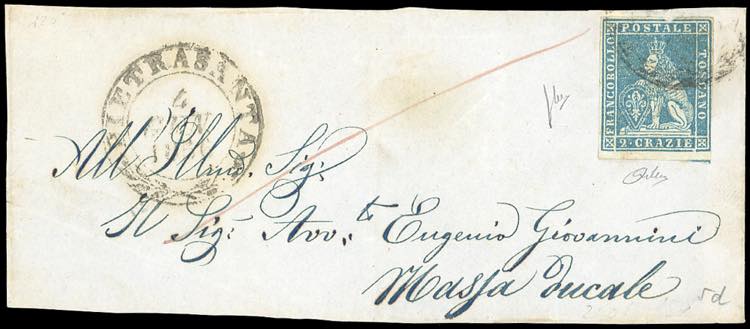 PIETRASANTA
4
FRANCOBOLLO POSTALE TOSCANO
2 CRAZIE
All' Illmo. Sigr
Il Sigr Avv.to Eugenio Giovannini
Massa Ducale